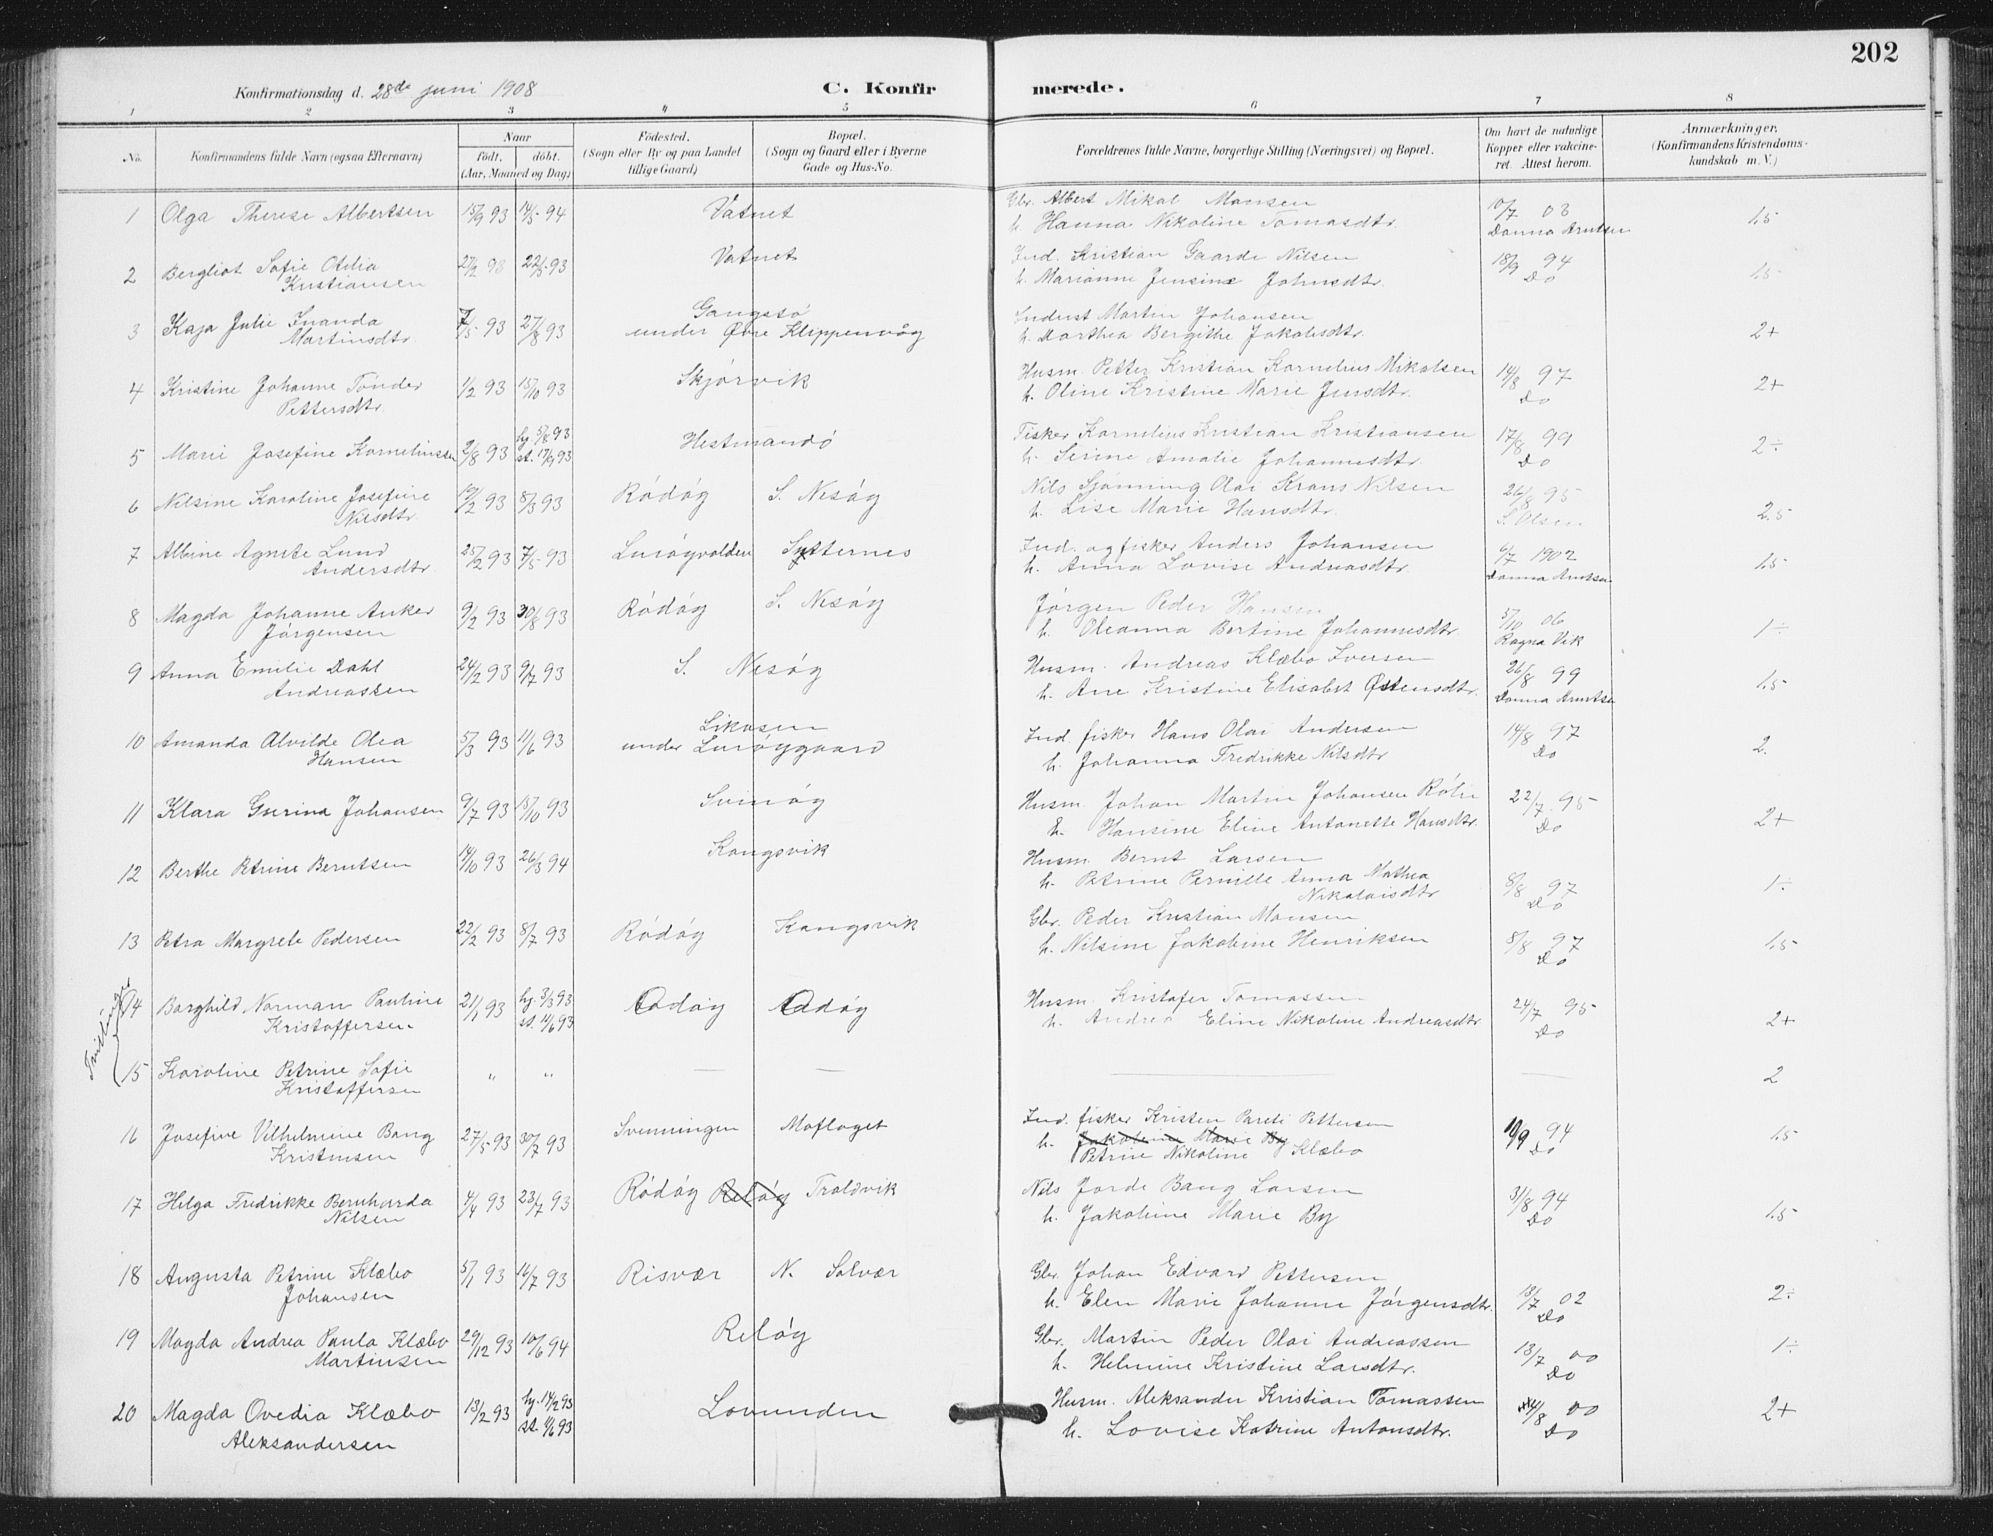 202
Konfirmationsdag d. 28de juni 1908
C. Konfirmerede.
1 2 3 4 5 6 7 8
No. Konfirmandens fulde Navn (ogsaa Efternavn) Naar födt. döbt. (Aar, Maaned og Dag) Födested. (Sogn eller By og paa Landet tillige Gaard) Bopæl. (Sogn og Gaard eller i Byerne Gade og Hus-No. Forældrenes fulde Navne, borgerlige Stilling (Næringsvei) og Bopæl. Om havt de naturlige Kopper eller vakcineret. Attest herom. Anmærkninger. (Konfirmandens Kristendomskundskab m. V.)
1 Olga Therese Albertsen 15/9 93 14/5 94 Vatnet Gbr. Albert Mikal Monsen 10/7 03 1.5
h. Hanna Nikoline Tomasdtr. Donna Arntsen
2 Bergliot Sofie Otilia 27/2 93 22/5 93 Vatnet Ind. Kristian Gaarde Nilsen 18/9 94 1.5
Kristiansen h. Marianne Jensine Johnsdtr. Do
3 Kaja Julie Inanda 7/5 93 27/8 93 Gangstö Inderst Martin Johansen 2+
Martinsdtr. under Øvre Klippenvåg h. Dorthea Bergithe Jakobsdtr.
4 Kristine Johanne Tönder 1/2 93 15/10 93 Skjørvik Husm. Petter Kristian Kornelius Mikalsen 14/8 97 2+
Pettersdtr. h. Oline Kristine Marie Jensdtr. Do
5 Marie Josefine Korneliussen 2/8 93 hj. 5/8 93 st. 17/9 93 Hestmandö Fisker Kornelius Kristian Kristiansen 17/8 99 2÷
h. Serine Amalie Johannesdtr. Do
6 Nilsine Karoline Josefine 19/2 93 8/3 93 Rödöy S. Nesöy Nils Sjønning Olai Krans Nilsen 26/8 95 2.5
Nilsdtr. h. Lise Marie Hansdtr. S. Olsen
7 Albine Agnete Lund 25/2 93 7/5 93 Luröyvolden Sytternes Ind. og fisker Anders Johansen 6/7 1902 1.5
Andersdtr. h. Anna Lovise Andreasdtr. Donna Arntsen
8 Magda Johanne Anker 9/2 93 30/8 93 Rödöy S. Nesöy Jörgen Peder Hansen 5/10 06 1÷
Jörgensen h. Oleanna Bertine Johannesdtr. Ragna Vik
9 Anna Emilie Dahl 24/2 93 9/7 93 S. Nesöy Husm. Andreas Klæbo Iversen 26/8 99 1.5
Andreassen h. Ane Kristine Elisabet Østensdtr. Donna Arntsen
10 Amanda Alvilde Olea 5/3 93 11/6 93 Likosen Ind. fisker Hans Olai Andersen 14/8 97 2.
Hansen under Luröygaard h. Johanna Fredrikke Nilsdtr. Do
11 Klara Gurina Johansen 9/7 93 15/10 93 Svinöy Husm. Johan Martin Johansen Rölie 22/7 95 2+
h. Hansine Eline Antonette Hansdtr. Do
12 Berthe Petrine Berntsen 14/10 93 26/3 94 Kongsvik Husm. Bernt Larsen
h. Petrine Pernille Anna Mathea Nikolaisdtr 8/8 97 Do 1÷
13 Petra Margrete Pedersen 22/2 93 8/7 93 Rödöy Kongsvik Gbr. Peder Kristian Monsen
h. Nilsine Jakobine Henriksen 8/8 97 Do 1.5
14 Borghild Norman Pauline 21/1 93 hj. 3/3 93 st. 11/6 93 Odöy Odöy Husm. Kristofer Tomassen 24/7 95 2+
Kristoffersen h. Andrea Eline Nikoline Andreasdtr Do
15 Karoline Petrine Sofie " " — — — — 2
Kristoffersen
16 Josefine Vilhelmine Bang 27/5 93 30/7 93 Svenningen Moflaget Ind. fisker Kristen Pareli Pettersen 10/9 94 1.5
Kristensen h. Jakobine Marie By Do
Petrine Nikoline Klæbo
17 Helga Fredrikke Bernharda 4/4 93 23/7 93 Rödöy Relöy Troldvik Nils Jorde Bang Larsen 31/8 94 1.5
Nilsen h. Jakobine Marie By Do
18 Augusta Petrine Klæbo 5/1 93 16/7 93 Risvær N. Solvær Gbr. Johan Edvard Pettersen 2÷
Johansen h. Elen Marie Johanne Jörgensdtr. 18/7 02 Do
19 Magda Andrea Paula Klæbo 29/12 93 10/6 94 Relöy Gbr. Martin Peder Olai Andreassen 13/7 00 1÷
Martinsen h. Helmine Kristine Larsdtr. Do
20 Magda Ovedia Klæbo 13/2 93 hj. 14/2 93 st. 11/6 93 Lovunden Husm. Aleksander Kristian Tomassen 14/8 00 2+
Aleksandersen h. Lovise Katrine Antonsdtr. Do